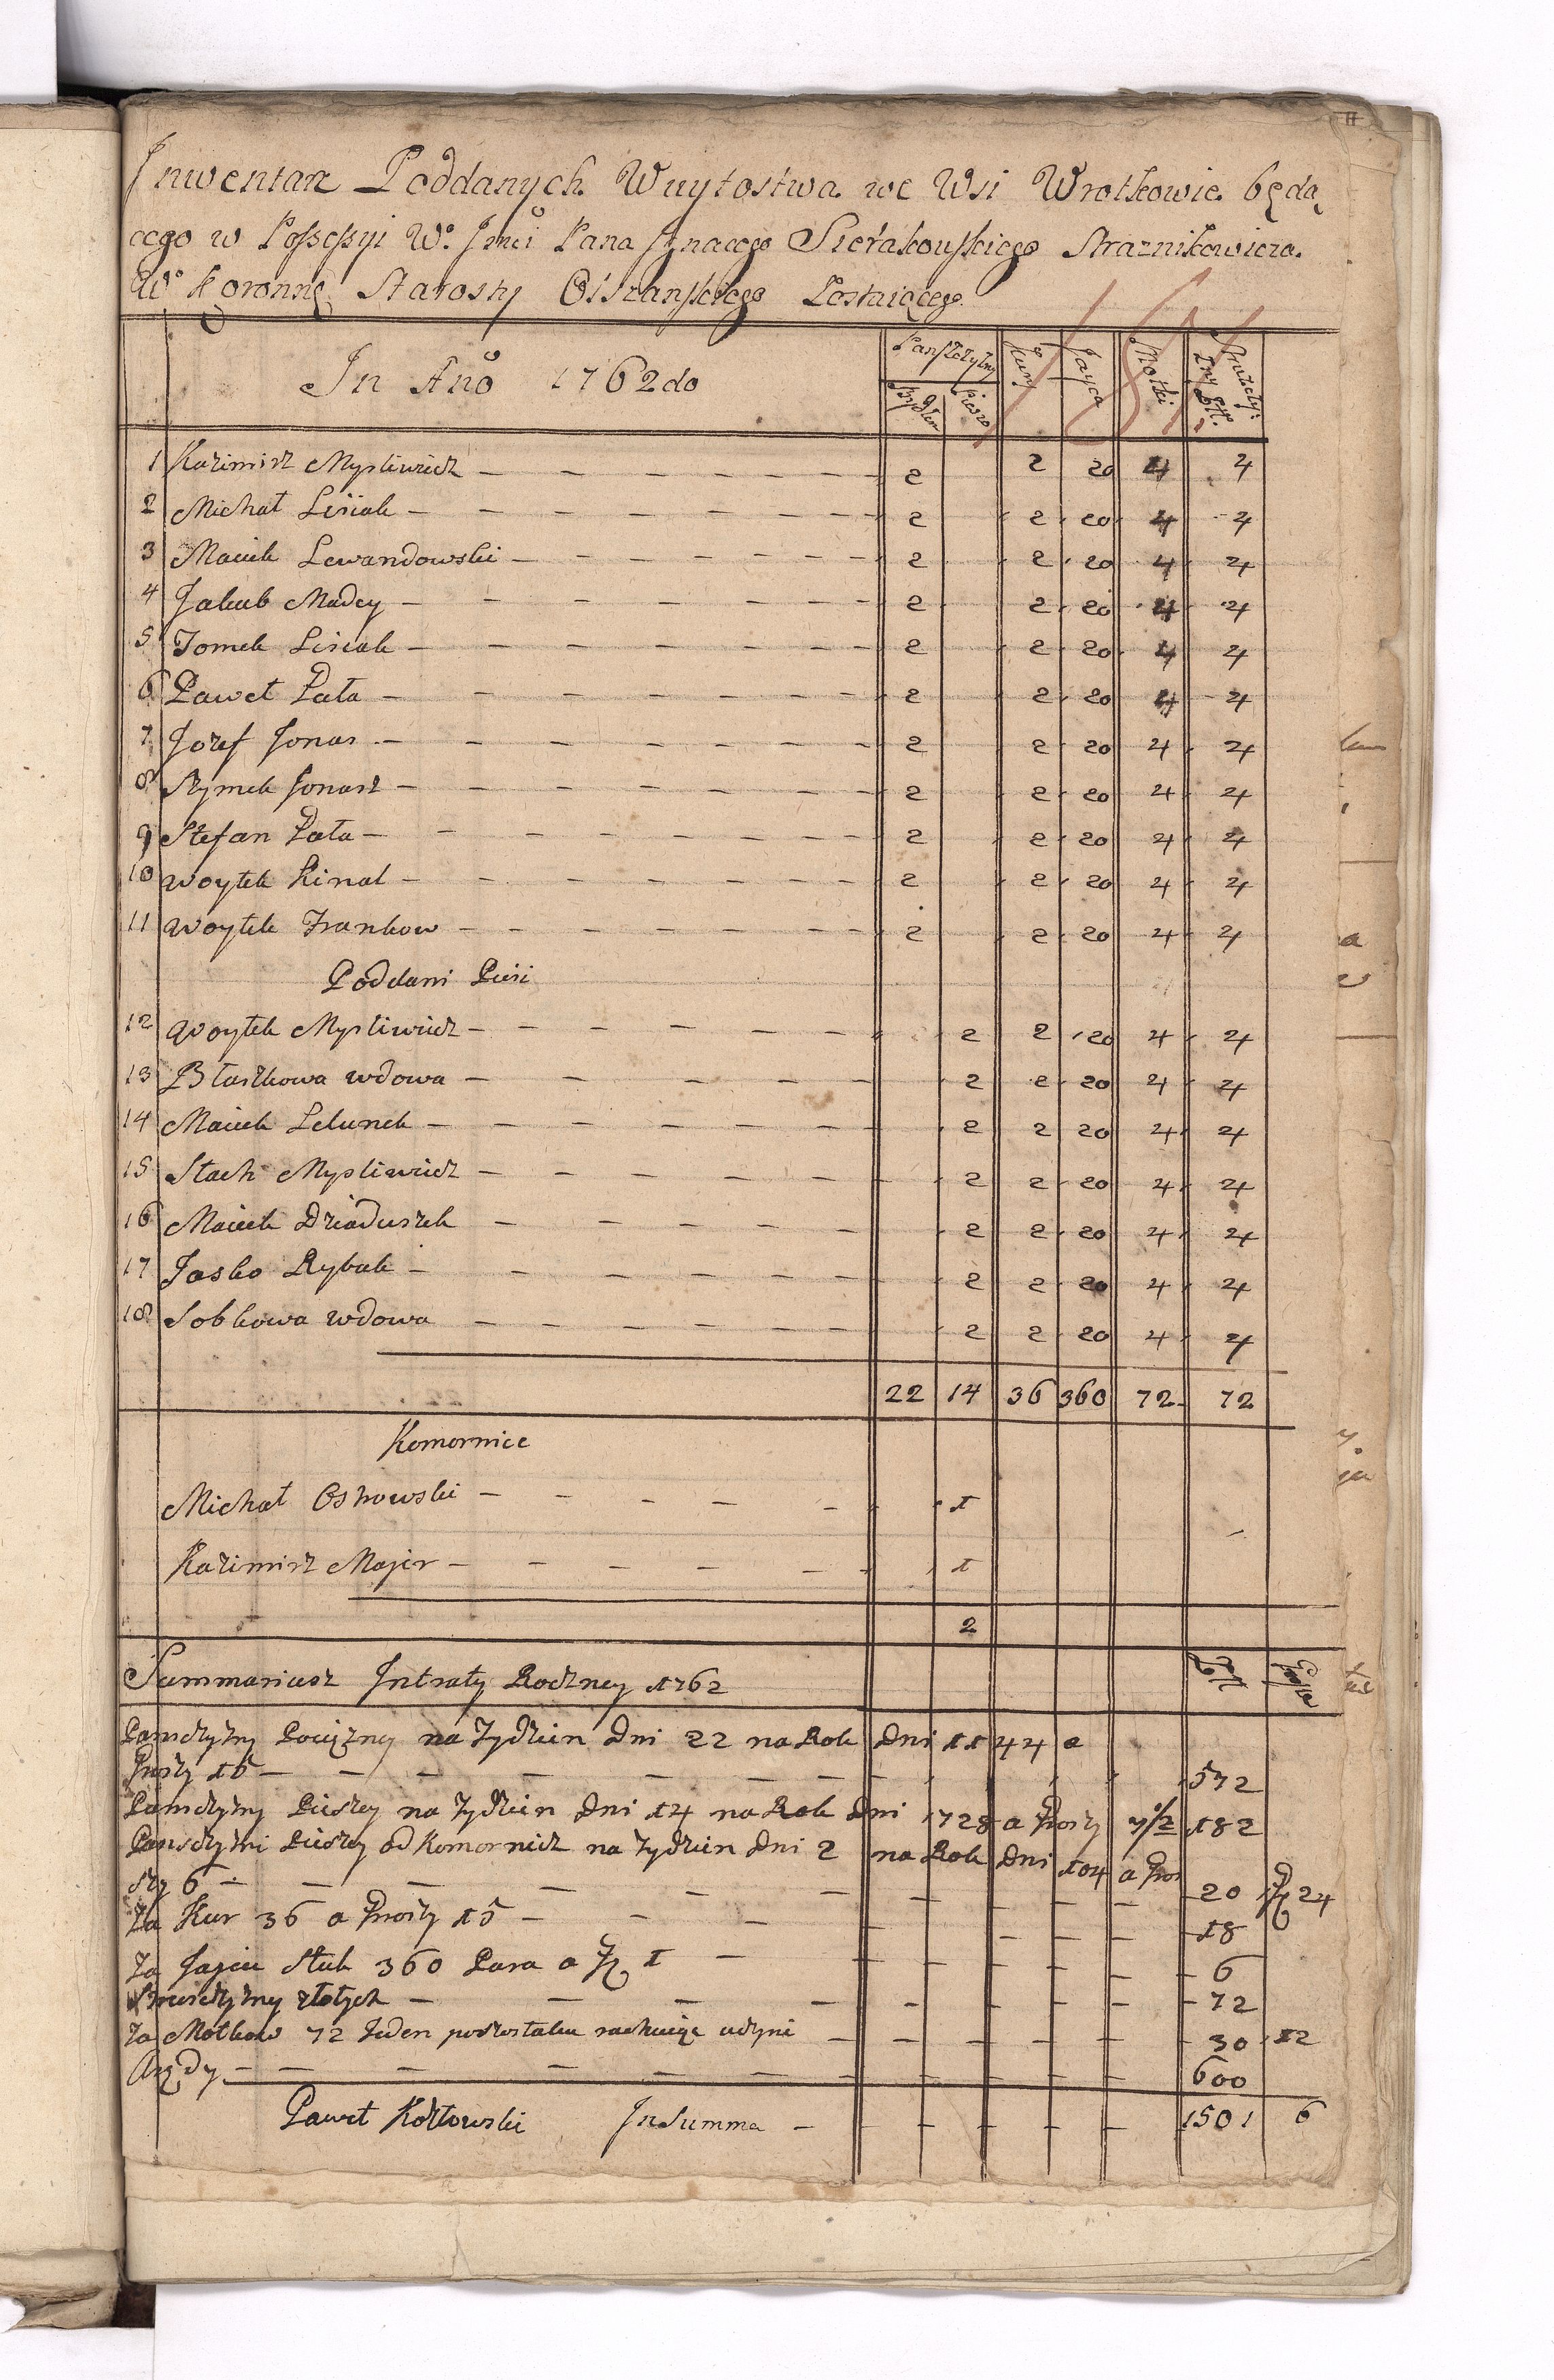 11
Inwentarz Poddanych Wuytostwa we Wsi Wrotkowie będą
cego w Possessyi W° Jmci Pana Ignacego Sierakowskiego Straznikowicza
W° Koronnę Starosty Olszanskiego
In Anõ 1762do
Panszczyzny Kury Jayca Motki
Bydłem Pieszo
1 Kazimirz Mysliwiecz 2 2 20 4 4
2 Michał Lisiak 2 2 20 4 4
3 Maciek Lewandowski 2 2 20 4 4
4 Jakub Madey 2 2 20 4 4
5 Tomek Lisiak 2 2 20 4 4
6 Paweł Pała 2 2 20 4 4
7 Jozef Jonas 2 2 20 4 4
8 Szymek Jonasz 2 2 20 4 4
9 Stefan Pała 2 2 20 4 4
10 Woytek Kinal 2 2 20 4 4
11 Woytek Frankow 2 2 20 4 4
Poddani Piesi
12 Woytek Mysliwiecz 2 2 20 4 4
13 Błaszkowa wdowa 2 2 20 4 4
14 Maciek Lelunek 2 2 20 4 4
15 Stach Mysliwiecz 2 2 20 4 4
16 Maciek Dziaduszek 2 2 20 4 4
17 Jasko Rybak 2 2 20 4 4
18 Sobkowa wdowa 2 2 20 4 4
22 14 36 360 72 72
Kornornice
Michał Osnowski 1
Kazimirz Majer 1
2
Summariusz Intraty Roczney 1762
Panszczyzny Pociężney na Tydzien Dni 22 na Rok Dni 1144 a
Groszy 15 572
Panszczyzny Pieszey na Tydzien Dni 14 na Rok Dni 728 a Groszy 7 1/2 182
Panszczyzni Pieszey od Komornicz na Tydzien Dni 2 na Rok Dni 104 a Gro
szy 6 20 gr 24
Za Kur 36 a Groszy 15 18
Za Jajec Sztuk 360 Para a gr 1 6
złotych 72
Za Motkow 72 Jeden rachuiąc uczyni 30 12
Arędy 600
Paweł Kozłowski In Summa 1501 6